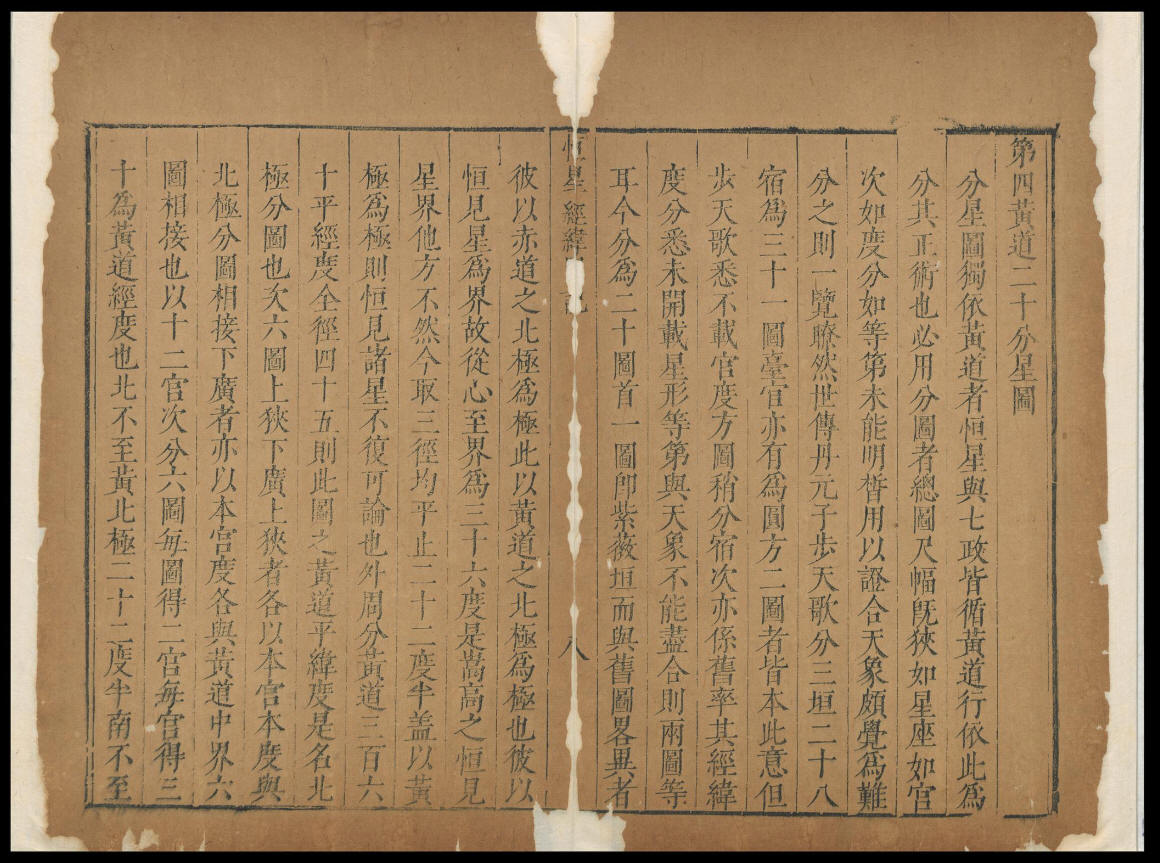 第四黃道二十分星圖
分星圖獨依黃道者恒星與七政皆循黃道行依此為
分其正術也必用分圖者總圖尺幅既狹如星座如宮
次如度分如等第未能明晳用以證合天象頗覺為難
分之則一覽瞭然世傳丹元子步天歌分三垣二十八
宿為三十一圖臺官亦有為圓方二圖者皆本此意但
步天歌悉不載宮度方圖稍分宿次亦係舊率其經緯
度分悉未開載星形等第與天象不能盡合則兩圖等
耳今分為二十圖首一圖卽紫薇垣而與舊圖畧異者
恒星經緯
八
彼以赤道之北極為極此以黃道之北極為極也彼以
恒見星為界故從心至界為三十六度是嵩高之恒見
星界他方不然今取三徑均平止二十二度半盖以黃
極為極則恒見諸星不復可論也外周分黃道三百六
十平經度全徑四十五則此圖之黃道平緯度是名北
極分圖也次六圖上狹下廣上狹者各以本宮本度與
北極分圖相接下廣者亦以本宮度各與黃道中界六
圖相接也以十二宮次分六圖每圖得二宮每宮得三
十為黃道經度也北不至黃北極二十二度半南不至